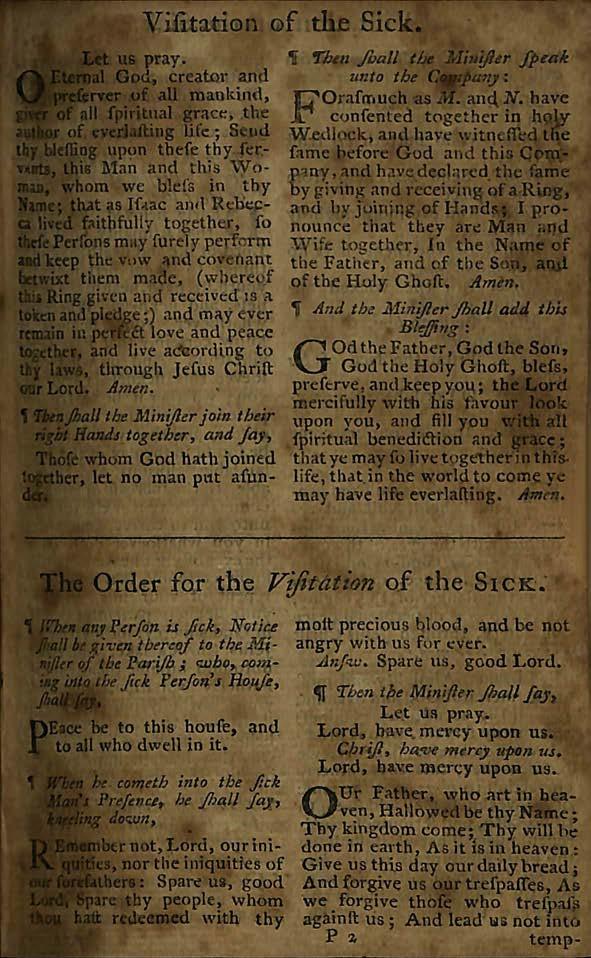 Viſitation of the Sick.
Let us pray.
O Eternal God, creator and
preſerver of all mankind,
giver of all ſpiritual grace, the
author of everlaſting life; Send
thy bleſſing upon theſe thy ſer-
vants, this Man and this Wo-
man, whom we bleſs in thy
Name; that as Iſaac and Rebec-
ca lived faithfully together, ſo
theſe Perſons may ſurely perform
and keep the vow and covenant
betwixt them made, (whereof
this Ring given and received is a
token and pledge;) and may ever
remain in perfect love and peace
together, and live according to
thy laws, through Jeſus Chriſt
our Lord. Amen.
¶ Then ſhall the Miniſter join their
right Hands together, and ſay,
Thoſe whom God hath joined
together, let no man put aſun-
der.
¶ Then ſhall the Miniſter ſpeak
unto the Company:
FOraſmuch as M. and N. have
conſented together in holy
Wedlock, and have witneſſed the
ſame before God and this Com-
pany, and have declared the ſame
by giving and receiving of a Ring,
and by joining of Hands; I pro-
nounce that they are Man and
Wife together, In the Name of
the Father, and of the Son, and
of the Holy Ghoſt. Amen.
¶ And the Miniſter ſhall add this
Bleſſing:
GOd the Father, God the Son,
God the Holy Ghoſt, bleſs,
preſerve, and keep you; the Lord
mercifully with his favour look
upon you, and fill you with all
ſpiritual benediction and grace;
that ye may ſo live together in this
life, that in the world to come ye
may have life everlaſting. Amen.
The Order for the Viſitation of the SICK.
¶ When any Perſon is ſick, Notice
ſhall be given thereof to the Mi-
niſter of the Pariſh; who, com-
ing into the ſick Perſon's Houſe,
ſhall ſay,
PEace be to this houſe, and
to all who dwell in it.
¶ When he cometh into the ſick
Man's Preſence, he ſhall ſay,
kneeling down,
REmember not, Lord, our ini-
quities, nor the iniquities of
our forefathers: Spare us, good
Lord, Spare thy people, whom
thou haſt redeemed with thy
moſt precious blood, and be not
angry with us for ever.
Anſw. Spare us, good Lord.
¶ Then the Miniſter ſhall ſay,
Let us pray.
Lord, have mercy upon us.
Chriſt, have mercy upon us.
Lord, have mercy upon us.
OUr Father, who art in hea-
ven, Hallowed be thy Name;
Thy kingdom come; Thy will be
done in earth, As it is in heaven:
Give us this day our daily bread;
And forgive us our treſpaſſes, As
we forgive thoſe who treſpaſs
againſt us; And lead us not into
P 2
temp-